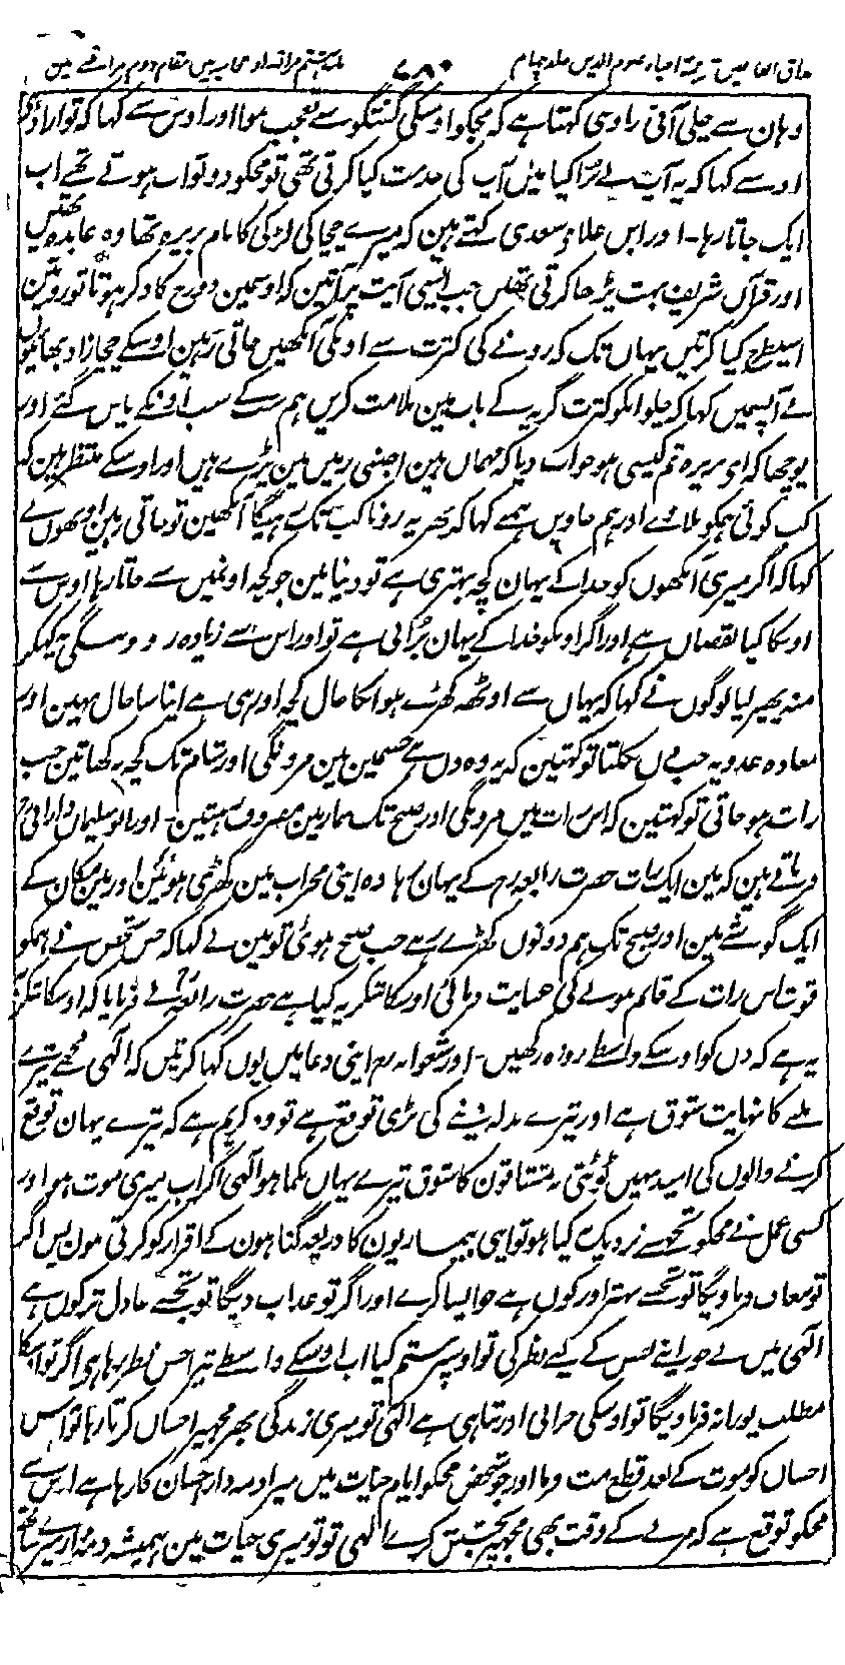 مذاق العارفین ترجمۂ احیاء علوم الدین جلد چہارم ۷۸۰ باب ہشتم مراقبہ اور محاسبہ میں مقام دوم مراقبے مین
وہان سے چلی آئی راوی کہتا ہے کہ مجکو اوسکی گفتگو سے تعجب ہوا اور اوس سے کہا کہ تو آزاد ہے
اوسے کہا کہ یہ آپنے بُرا کیا مین آپ کی خدمت کیا کرتی تھی تو مجکو دو ثواب ہوتے تھے اب
ایک جاتا رہا۔ اور ابن علاء سعدی کہتے ہین کہ میرے چچا کی لڑکی کا نام بریرہ تھا وہ عابدہ تھین
اور قرآن شریف بہت پڑھا کرتی تھین جب ایسی آیت پر آتین کہ اوسمین دوزخ کا ذکر ہوتا تو روتین
اسیطرح کیا کرتین یہان تک کہ رونے کی کثرت سے اونکی آنکھین جاتی رہین اوسکے چچا زاد بھائیون
نے آپسمین کہا کہ چلو انکو کثرت گریہ کے باب مین ملامت کرین ہم سب کے سب اونکے پاس گئے اور
پوچھا کہ ای بریرہ تم کیسی ہو جواب دیا کہ مہمان ہین اجنبی زمین مین پڑے ہین اور اوسکے منتظر ہین کہ
کب کوئی ہمکو بلاوے اور ہم جاوین ہمنے کہا کہ پھر یہ رونا کب تک رہیگا آنکھین تو جاتی رہین اونھون نے
کہا کہ اگر میری آنکھون کو خدا کے یہان کچھ بہتری ہے تو دنیا مین جو کچھ اونمین سے جاتا رہا اوس سے
اوسکا کیا نقصان ہے اور اگر اونکو خدا کے یہان بُرائی ہے تو اور اس سے زیادہ رووینگی یہ کہکر
منہ پھیر لیا لوگون نے کہا کہ یہان سے اوٹھ کھڑے ہو انکا حال کچھ اور ہی ہے اپنا سا حال نہین اور
معاذہ عدویہ جب دن نکلتا تو کہتین کہ یہ وہ دن ہے جسمین مین مرونگی اور شام تک کچھ نہ کھاتین جب
رات ہو جاتی تو کہتین کہ اس رات مین مرونگی اور صبح تک نماز مین مصروف رہتین۔ اور ابو سلیمان دارانی رح
فرماتے ہین کہ مین ایک رات حضرت رابعہ رح کے یہان رہا وہ اپنی محراب مین کھڑی ہوئین اور مین مکان کے
ایک گوشے مین اور صبح تک ہم دونون کھڑے رہے جب صبح ہوئی تو مین نے کہا کہ جس شخص نے ہمکو
قوت اس رات کے قائم ہونے کی عنایت فرمائی اوسکا شکریہ کیا ہے حضرت رابعہ رح نے فرمایا کہ اوسکا شکریہ
یہ ہے کہ دن کو اوسکے واسطے روزہ رکھین۔ اور شعوانہ رح اپنی دعا مین یون کہا کرتین کہ الٰہی مجھے تیرے
ملنے کا نہایت شوق ہے اور تیرے بدلہ دینے کی بڑی توقع ہے تو وہ کریم ہے کہ تیرے یہان توقع
کرنے والون کی امید نہین ٹوٹتی نہ مشتاقون کا شوق تیرے یہان نکما ہو الٰہی اگر اب میری موت ہو اور
کسی عمل نے مجکو تجھسے نزدیک نہ کیا ہو تو اپنی بیماریون کا ذریعہ گناہون کے اقرار کو کرتی ہون پس اگر
تو معاف فرماویگا تو تجھسے بہتر اور کون ہے جو ایسا کرے اور اگر تو عذاب دیگا تو تجھسے عادل تر کون ہے
الٰہی مین نے جو اپنے نفس کے لیے نظر کی تو اوسپر ستم کیا اب اوسکے واسطے تیرا حسن نظر رہا ہی اگر تو اوسکا
مطلب پورا نہ فرماویگا تو اوسکی خرابی اور تباہی ہے الٰہی تو میری زندگی بھر مجھپر احسان کرتا رہا تو اس
احسان کو موت کے بعد قطع مت فرما اور جو شخص مجکو ایام حیات مین میرا ذمہ دار احسان کا رہا ہے اوس سے
مجکو توقع ہے کہ مرنے کے وقت بھی مجھپر بخشش کرے الٰہی تو تو میری حیات مین ہمیشہ ذمہ دار میرے ساتھ